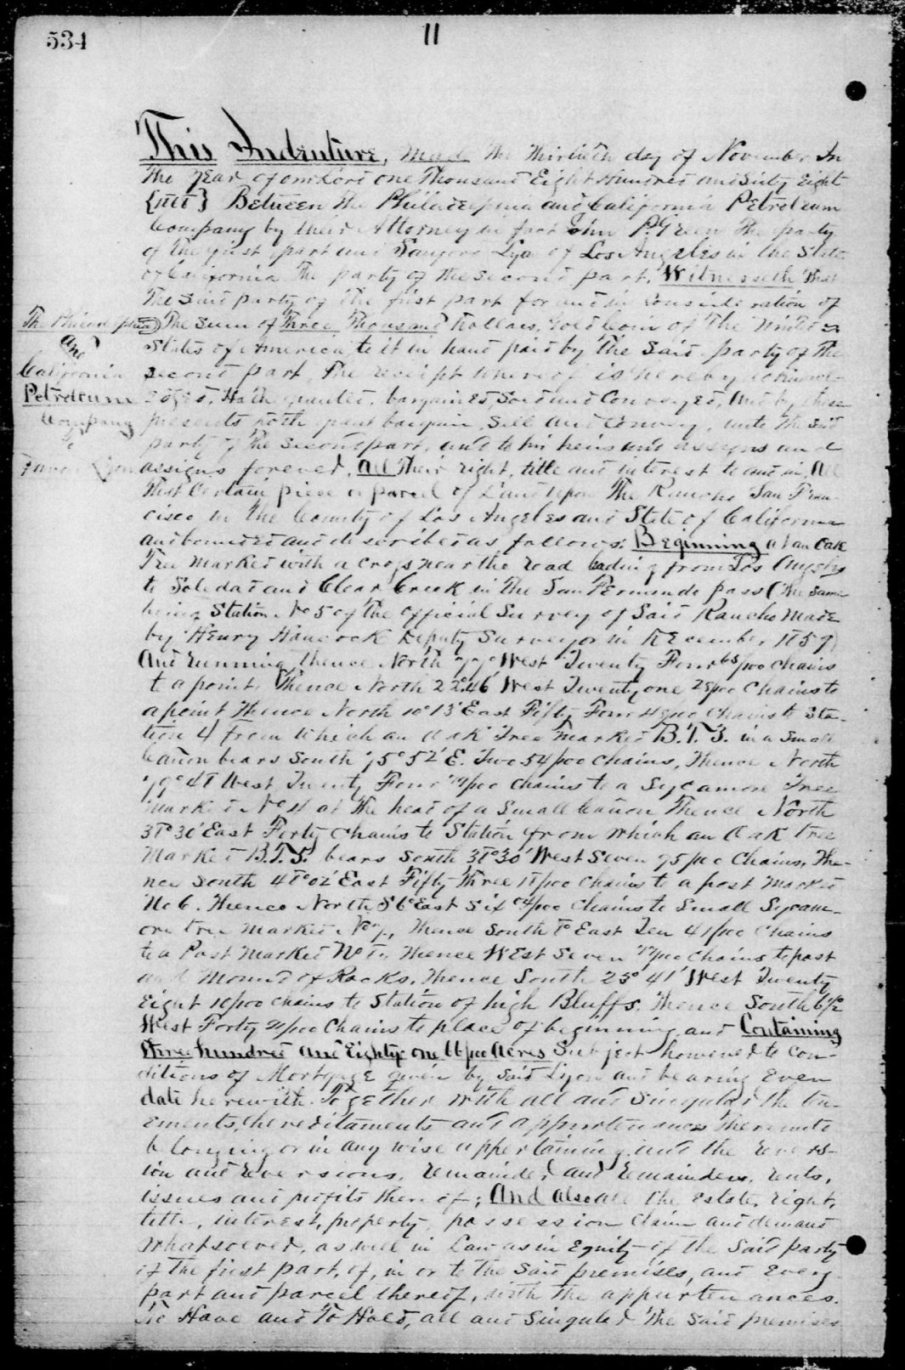 534
11
This Indenture, Made the thirtieth day of November In
the year of our Lord one Thousand Eight Hundred and Sixty Eight
Between the Philadelphia and California Petroleum
Company by their Attorney in fact John P. Green The party
of the first part and Sanford Lyon of Los Angeles in the State
of California The party of the second part, Witnesseth That
The Said party of the first part for and in consideration of
The sum of Three Thousand Dollars, Gold Coin of The United
States of America, to it in hand paid by The Said party of The
second part, The receipt where of is hereby acknowl-
edged, Hath granted, bargained, Sold and Conveyed, And by these
presents doth grant bargain, Sell and Convey, unto The Said
party of The Second part, and to his heirs and assigns and
assigns forever, All Their right, title and interest to and in, All
That Certain piece or parcel of Land upon The Rancho San Fran-
cisco in the County of Los Angeles and State of California
and bounded and described as follows: Beginning at an Oak
Tree Marked with a cross near the road leading from Los Angeles
to Soledad and Clear Creek in The San Fernando pass (The Same
being Station No 5 of the Official Survey of Said Rancho Made
by Henry Hancock Deputy Surveyor in December
And running thence North West Twenty Four chains
to a point, Thence North 22° 46' West Twenty one Chains to
a point Thence North 10° 13' East Fifty Four Chains to Sta-
tion 4 from which an Oak Tree Marked B.T.S. in a Small
Cañon bears South 75° 52' E. Two 54/100 Chains, Thence North
West Twenty Four Chains to a Sycamore Tree
Marked No at The head of a Small Cañon Thence North
East Forty Chains to Station from which an Oak tree
Marked B.T.S. bears South West Seven 75/100 Chains, The-
nce South East Fifty Three Chains to a post Marked
No 6. Thence North East Six Chains to Small Sycam-
ore tree Marked No 7, Thence South East Ten 41/100 Chains
to a Post Marked No Thence West Seven Chains to post
and Mound of Rocks, Thence South 23° 41' West Twenty
Eight Chains to Station of high Bluffs. Thence South
West Forty Chains to place of beginning and Containing
Three hundred and Eighty one 66/100 Acres Subject however to Con-
ditions of Mortgage given by Said Lyon and bearing Even
date herewith. Together with all and Singular the ten-
ements, hereditaments and appurtenances Thereunto
belonging or in any wise appertaining, and the revers-
ion and reversions, remainder and remainders, rents,
issues and profits there of; And also all the estate, right,
title, interest, property, possession Claim and demand
Whatsoever, as well in Law as in Equity of the Said party
of the first part, of, in or to the Said premises, and Every
part and parcel thereof, with the appurtenances.
To Have and To Hold, all and Singular The Said premises
The
and
California
Petroleum
Company
to
Lyon